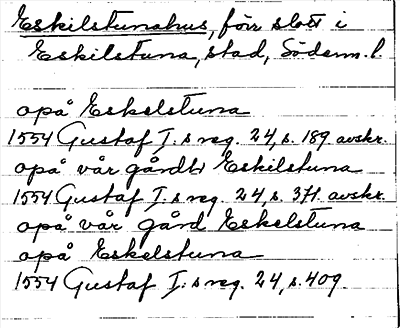 Eskilstunahus, förr slott i
Eskilstuna, stad, Söderm. l.
opå Eskelstuna
1554 Gustaf I:s reg. 24, s. 189 avskr.
opå vår gårdh Eskilstuna
1554 Gustaf I:s reg. 24, s. 371 avskr.
opå vår gård Eskelstuna
opå Eskelstuna
1554 Gustaf I:s reg. 24, s. 409.